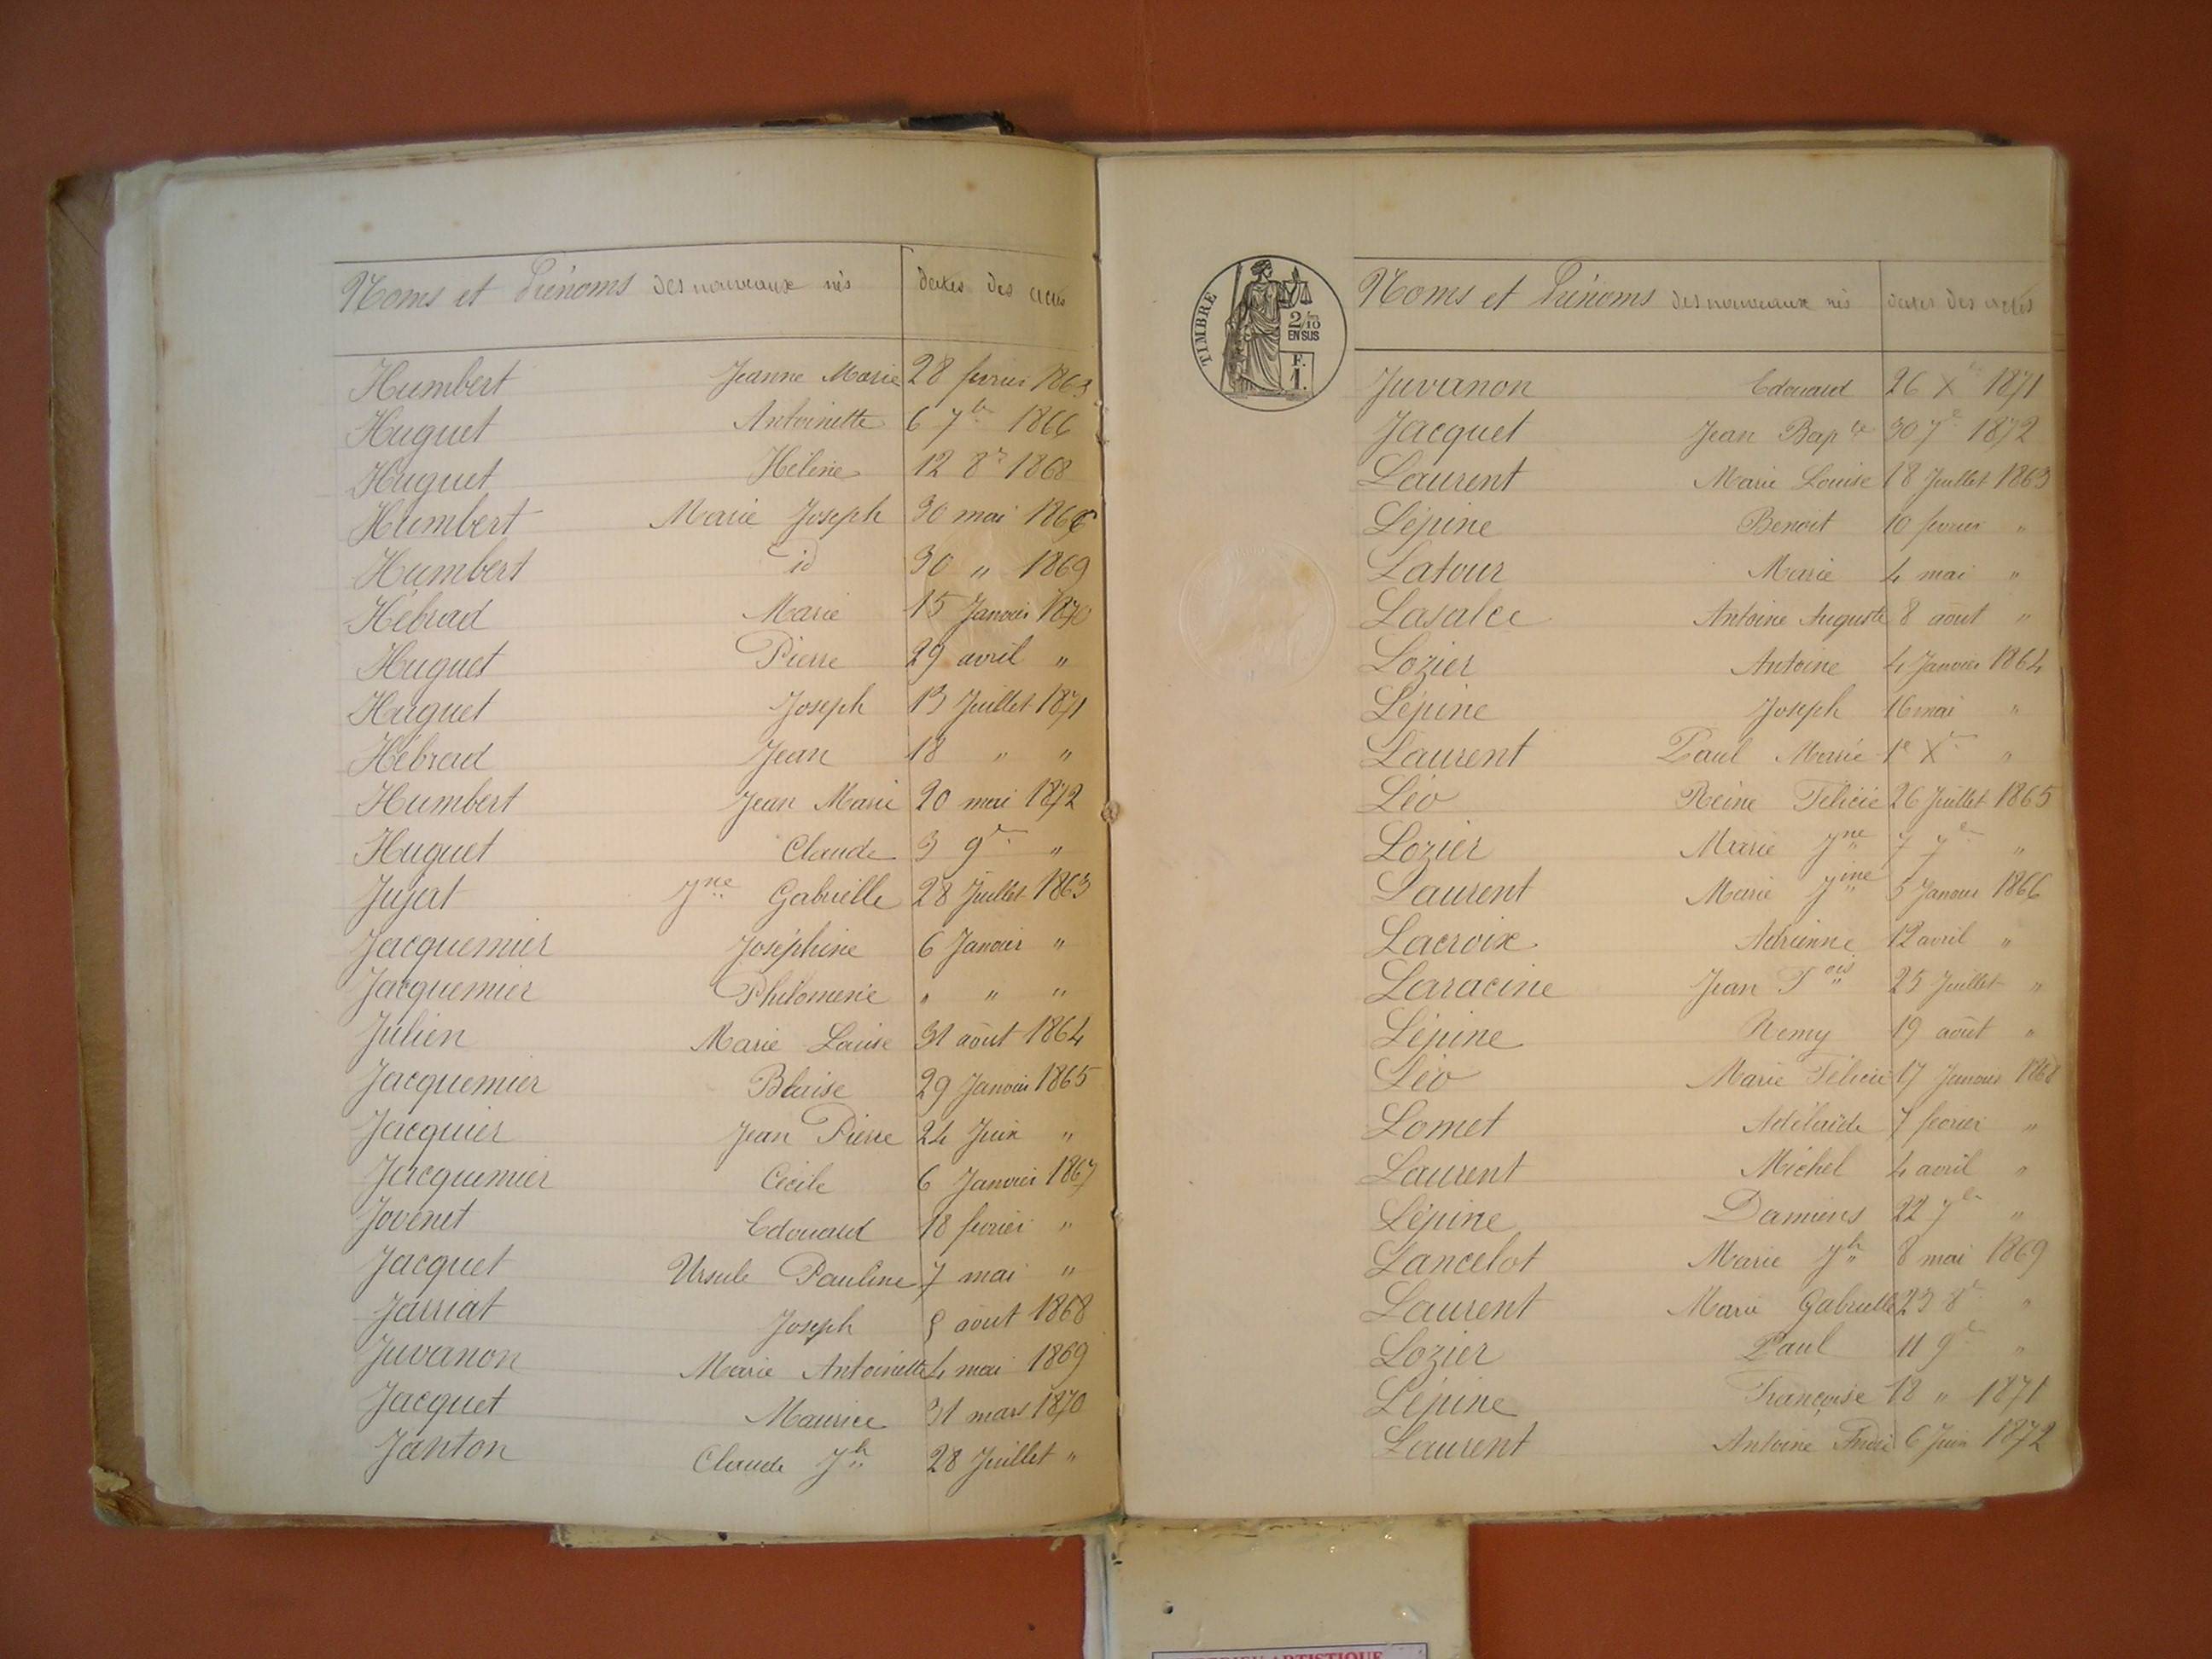 Noms et Prénoms des nouveaux nés dates des actes
Humbert Jeanne Marie 28 fevrier 1863
Huguet Antoinette 6 7bre 1866
Huguet Hélène 12 8re 1868
Humbert Marie Joseph 30 mai
Humbert id 30 " 1869
Hébrad Marie 15 Janvier 1870
Huguet Pierre 29 avril "
Huguet Joseph 13 Juillet 1871
Hébrad Jean 18 " "
Humbert Jean Marie 20 mai 1872
Huguet Claude 3 9re "
Jujat Jne Gabrielle 28 Juillet 1863
Jacquemier Joséphine 6 Janvier "
Jacquemier Philomène " " "
Julien Marie Louise 31 août 1864
Jacquemier Blaise 29 Janvier 1865
Jacquier Jean Pierre 24 Juin "
Jacquemier Cécile 6 Janvier 1867
Jovenet Edouard 18 fevrier "
Jacquet Ursule Pauline 7 mai "
Jarriat Joseph août 1868
Juvanon Marie Antoinette 4 mai 1869
Jacquet Maurice 31 mars 1870
Janton Claude Jh 28 Juillet "
TIMBRE
2/10
EN SUS
F.
1.
Noms et Prénoms des nouveaux nés dates des actes
Juvanon Edouard 26 Xbre 1871
Jacquet Jean Bapte 30 7e 1872
Laurent Marie Louise 18 Juillet 1863
Lépine Benoit 10 fevrier "
Latour Marie 4 mai "
Lasalce Antoine Auguste 8 août "
Lozier Antoine 4 Janvier 1864
Lépine Joseph 16 mai "
Laurent Paul Marie 1e Xre "
Léo Reine Félicie 26 Juillet 1865
Lozier Marie Jne 7 7e "
Laurent Marie Jine 5 Janvier 1866
Lacroix Adrienne 12 avril "
Laracine Jean Fois 25 Juillet "
Lépine Remy 19 août "
Léo Marie Félicie 17 Janvier 1868
Lomet Adélaïde 7 fevrier "
Laurent Michel 4 avril "
Lépine Damiens 22 7bre "
Lancelot Marie Jh 8 mai 1869
Laurent Marie Gabrielle 23 8e "
Lozier Paul 11 9e "
Lépine Françoise 18 " 1871
Laurent Antoine André 6 Juin 1872